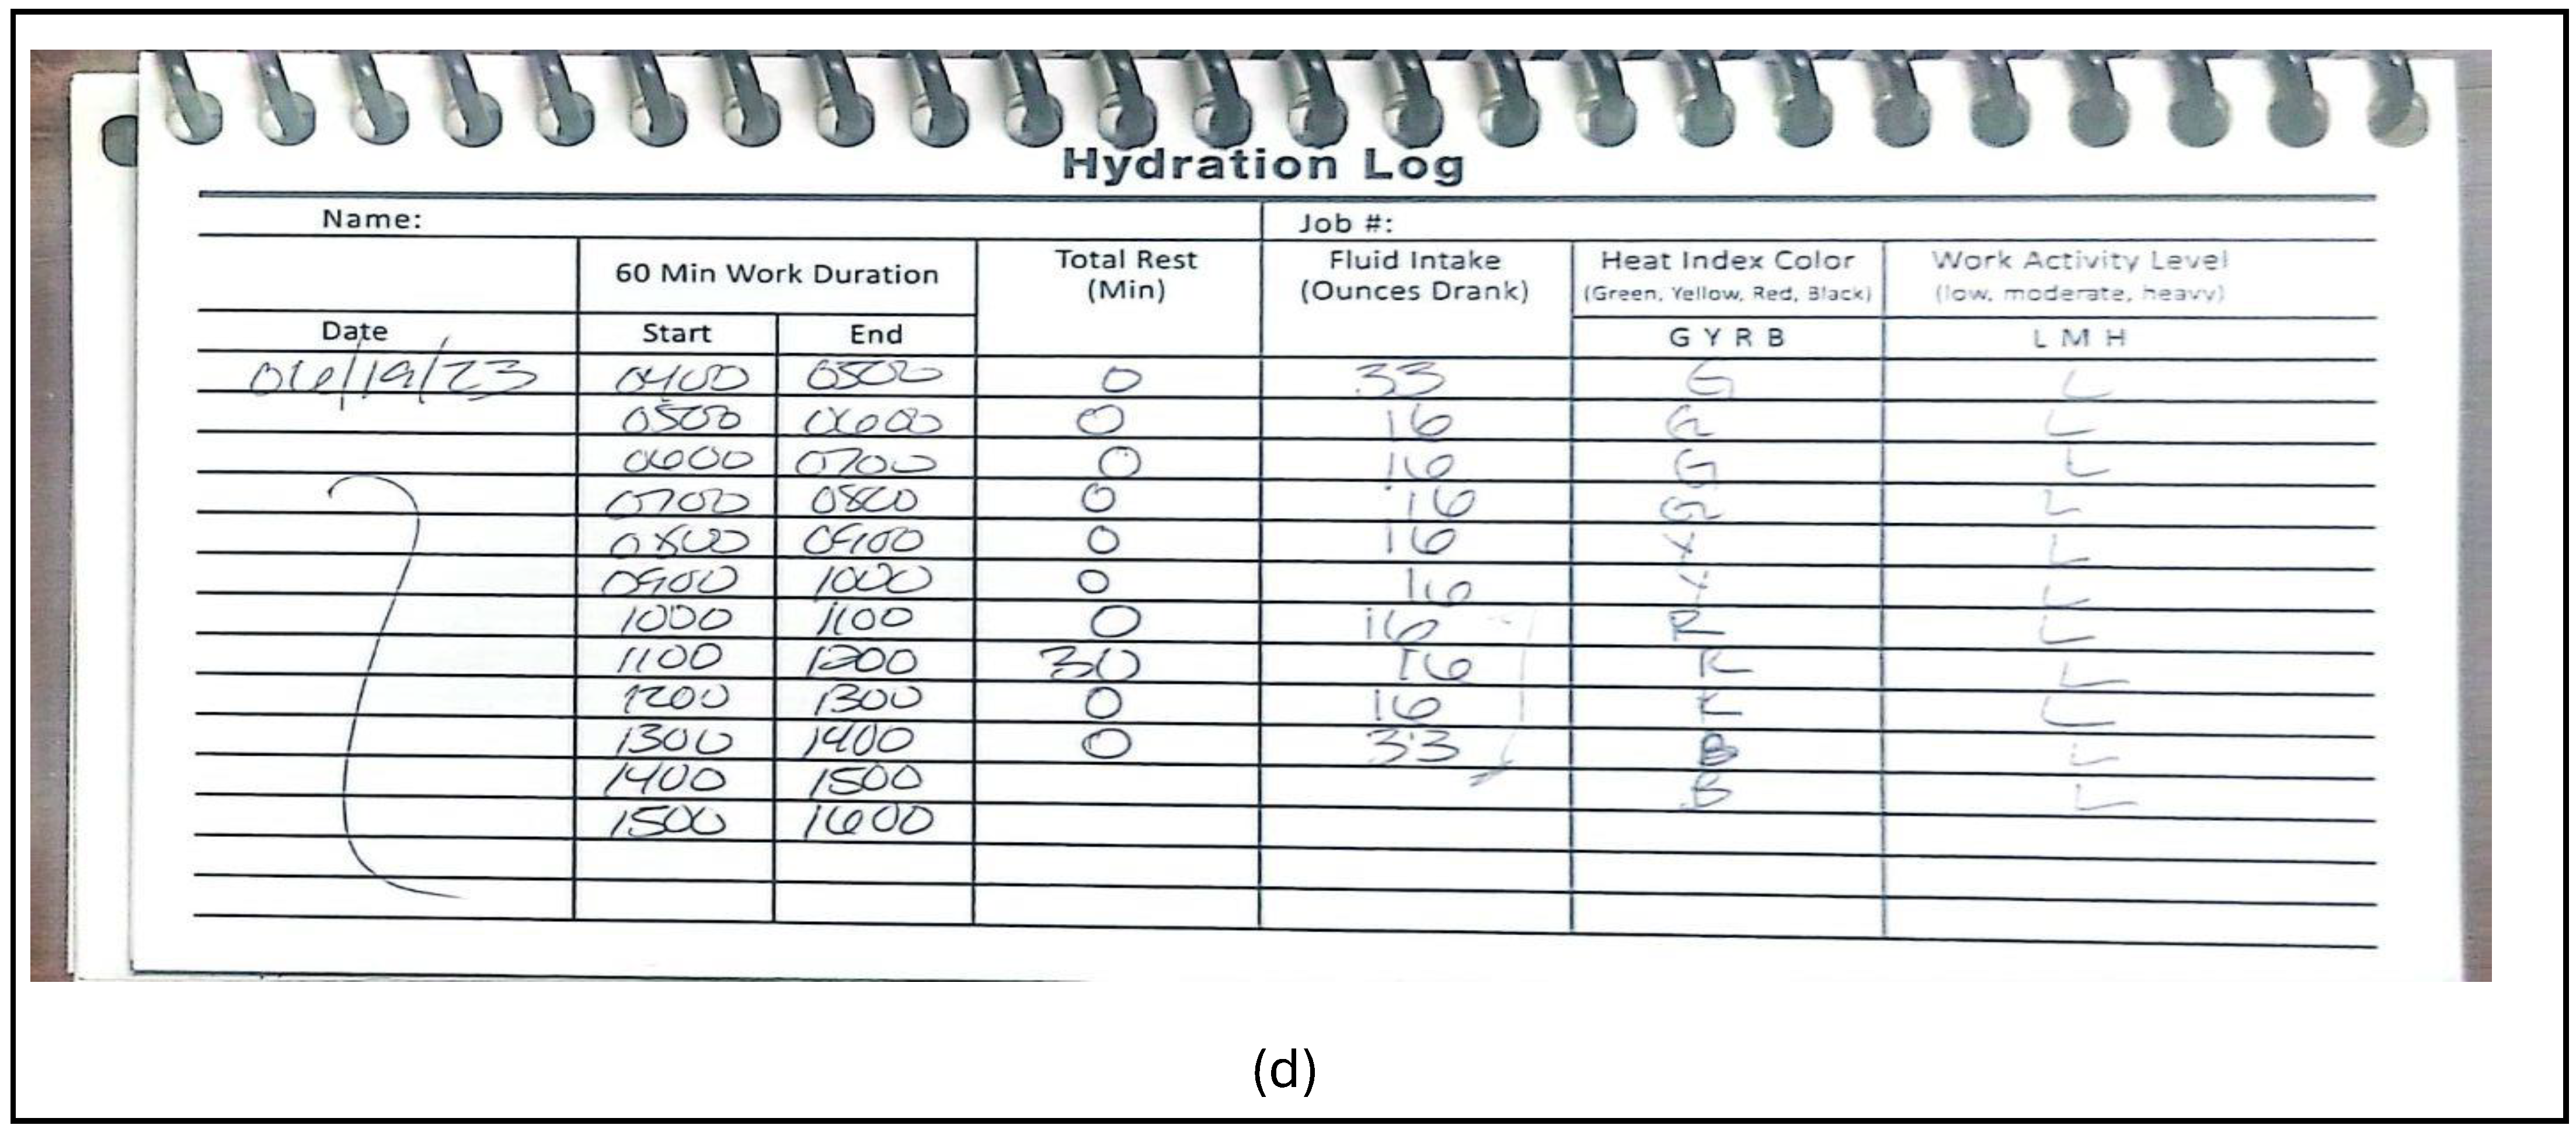 Hydration Log
Name: Job #:
60 Min Work Duration Total Rest (Min) Fluid Intake (Ounces Drank) Heat Index Color (Green, Yellow, Red, Black) Work Activity Level (low, moderate, heavy)
Date Start End G Y R B L M H
06/19/23 0400 0500 0 33 G L
0500 0600 0 16 G L
0600 0700 0 16 G L
0700 0800 0 16 G L
0800 0900 0 16 Y L
0900 1000 0 16 Y L
1000 1100 0 16 R L
1100 1200 30 16 R L
1200 1300 0 16 R L
1300 1400 0 33 B L
1400 1500 B L
1500 1600
(d)